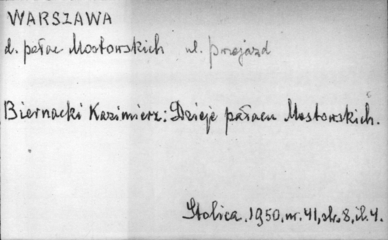 WARSZAWA
d. pałac Mostowskich ul. Przejazd
Biernacki Kazimierz: Dzieje pałacu Mostowskich.
Stolica. 1950, nr. 41, str. 8, il. 4.